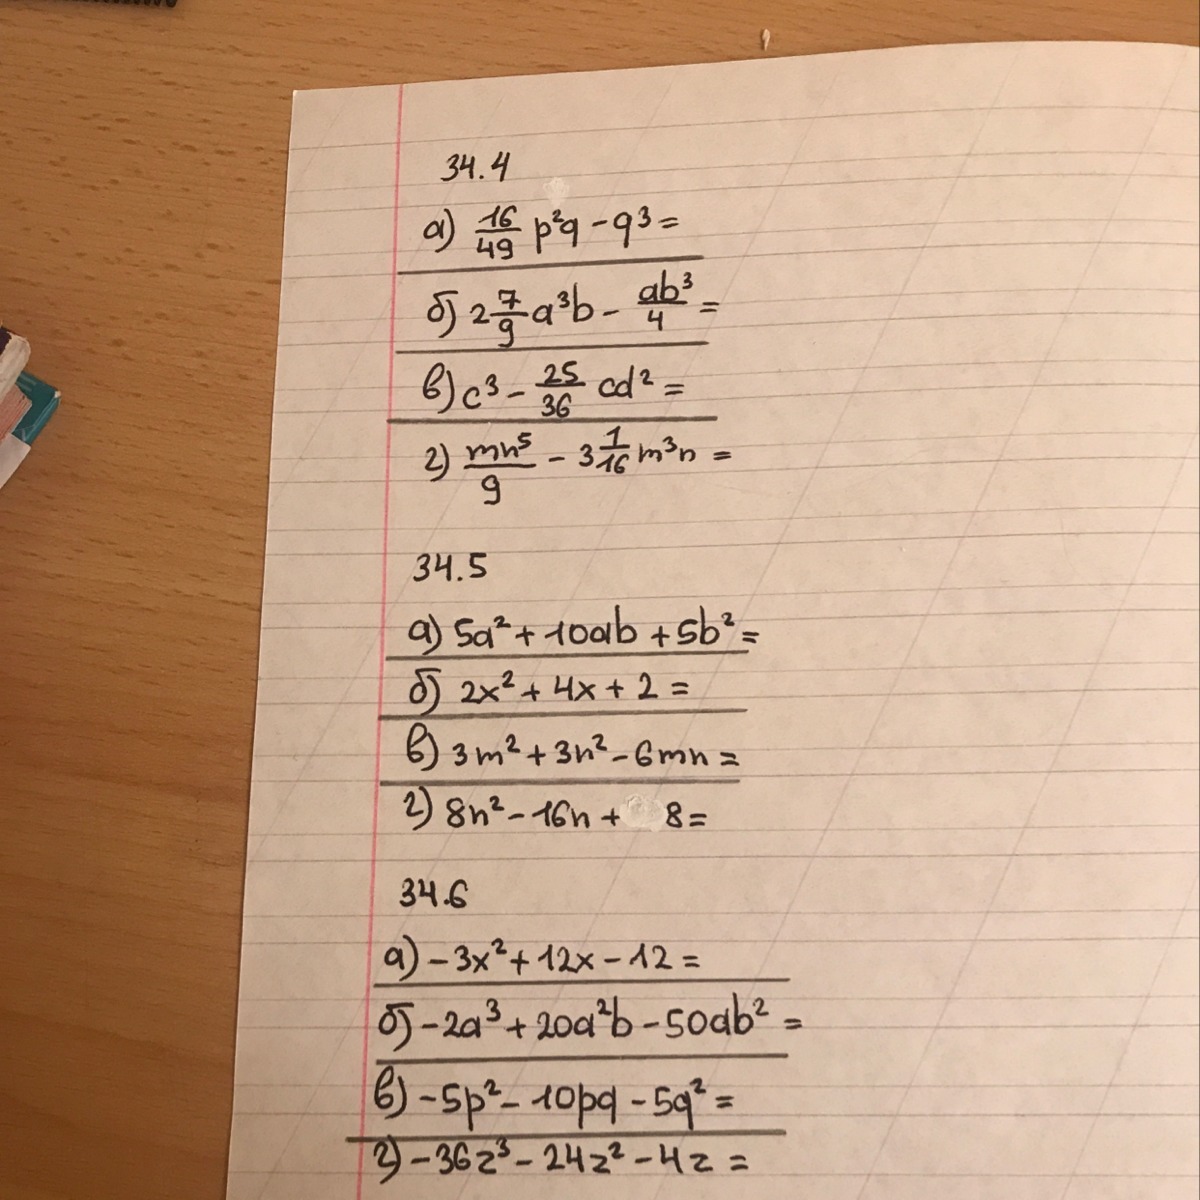 34.4
а) 16/49 p²q - q³ =
б) 2 7/9 a³b - ab³/4 =
в) c³ - 25/36 cd² =
г) mn⁵/9 - 3 1/16 m³n =
34.5
а) 5a² + 10ab + 5b² =
б) 2x² + 4x + 2 =
в) 3m² + 3n² - 6mn =
г) 8n² - 16n + 8 =
34.6
а) -3x² + 12x - 12 =
б) -2a³ + 20a²b - 50ab² =
в) -5p² - 10pq - 5q² =
г) -36z³ - 24z² - 4z =